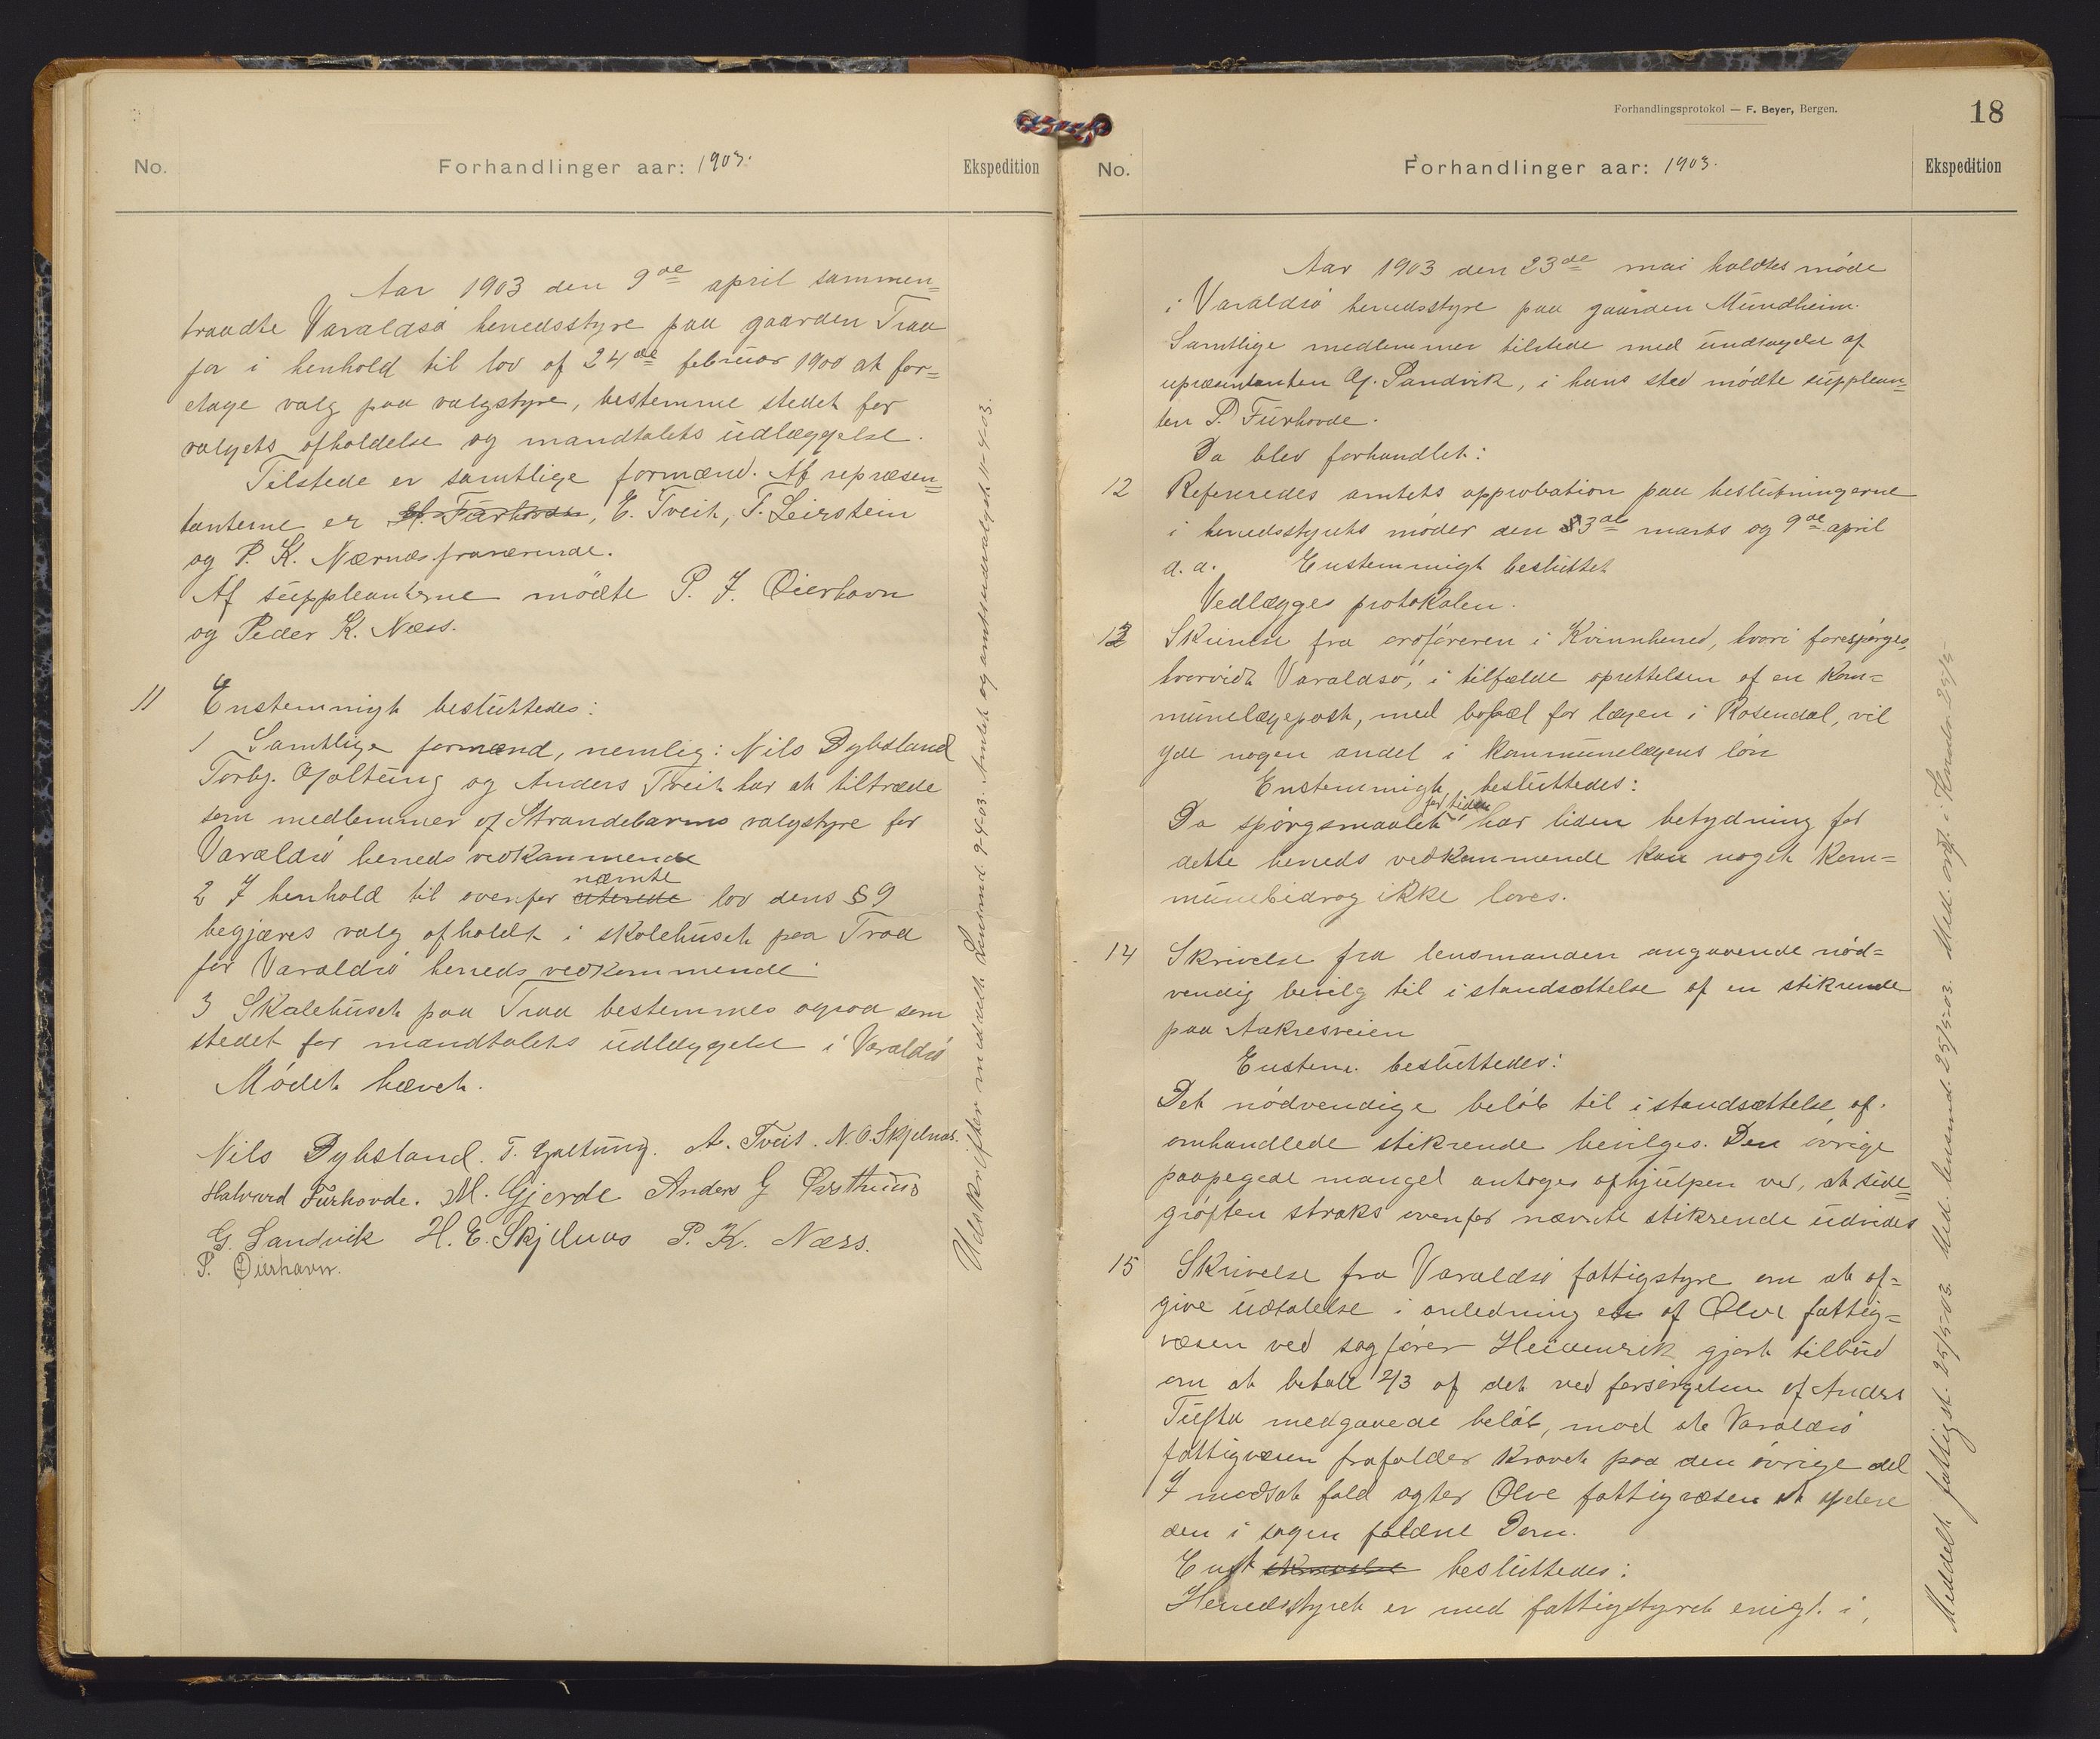 No.
Forhandlinger aar: 1903.
Ekspedition
Aar 1903 den 9de april sammen=
traadte Varaldsø herredsstyre paa gaarden Traa
for i henhold til lov af 24de februar 1900 at for=
etage valg paa valgstyre, bestemme stedet for
valgets afholdelse og mandtalets udlæggelse.
Tilstede er samtlige formænd. Af repræsen=
tanterne er H. Furhovde, E. Tveit, T. Leirstein
og P. K. Nærnes fraværende.
Af suppleanterne mödte P. J. Öierhavn
og Peder K. Næss.
11 Enstemmigt besluttedes:
1 Samtlige formænd, nemlig: Nils Dybsland
Torbj. Gjaltung og Anders Tveit har at tiltræde
som medlemmer af Strandebarms valgstyre for
Varaldsø herreds vedkommende
nævnte
2 I henhold til ovenfor citerede lov dens § 9
begjæres valg afholdt i skolehuset paa Traa
for Varaldsø herreds vedkommende.
3 Skolehuset paa Traa bestemmes ogsaa som
stedet for mandtalets udlæggelse i Varaldsø
Mødet hævet.
Nils Dybsland. T. Gjaltung. A. Tveit. N. O. Skjelnæs.
Halvard Furhovde. M. Gjerde Anders G
G. Sandvik H. E. Skjelnæs P. K. Næss.
P. Öierhavn.
Udskrifter meddelt Lensmd. 9-4-03. Amtet og amtsudvalget 11-4-03.
Forhandlingsprotokol — F. Beyer, Bergen.
18
No.
Forhandlinger aar: 1903.
Ekspedition
Aar 1903 den 23de mai holdtes møde
i Varaldsø herredsstyre paa gaarden Mundheim.
Samtlige medlemmer tilstede med undtagelse af
repræsentanten G. Sandvik, i hans sted mødte supplean=
ten P. Furhovde.
Da blev forhandlet:
12 Refereredes amtets approbation paa beslutningerne
i herredsstyrets møder den 3de marts og 9de april
d. a. Enstemmigt besluttet
Vedlægges protokolen.
13 Skrivelse fra ordføreren i Kvinnherred, hvori forespørges,
hvorvidt Varaldsø, i tilfælde oprettelsen af en kom=
munelægepost, med bopæl for lægen i Rosendal, vil
yde nogen andel i kommunelægens løn
Enstemmigt besluttedes:
for tiden
Da spørgsmaalet har liden betydning for
dette herreds vedkommende kan noget kom=
munebidrag ikke loves.
14 Skrivelse fra lensmanden angaaende nød=
vendig bevilg til istandsættelse af en stikrende
paa Aakresveien
Enstem. besluttedes:
Det nødvendige beløb til istandsættelse af
omhandlede stikrende bevilges. Den øvrige
paapegede mangel antages afhjulpen ved, at side=
grøften straks ovenfor nævnte stikrende udvides
15 Skrivelse fra Varaldsø fattigstyre om at af=
give udtalelse i anledning et af Ølve fattig=
væsen ved sagfører gjort tilbud
om at betale 2/3 af det ved forsørgelsen af Anders
Tufta medgaaede beløb, mod at Varaldsø
fattigvæsen frafalder kravet paa den øvrige del
I modsat fald agter Ølve fattigvæsen at apelere
den i sagen faldne Dom.
Enst skrivelse besluttedes:
Herredsstyret er med fattigstyret enigt i,
Meddelt fattigst. 25/5-03. Med. lensmd. 25/5-03. Med. ordf. i 25/5